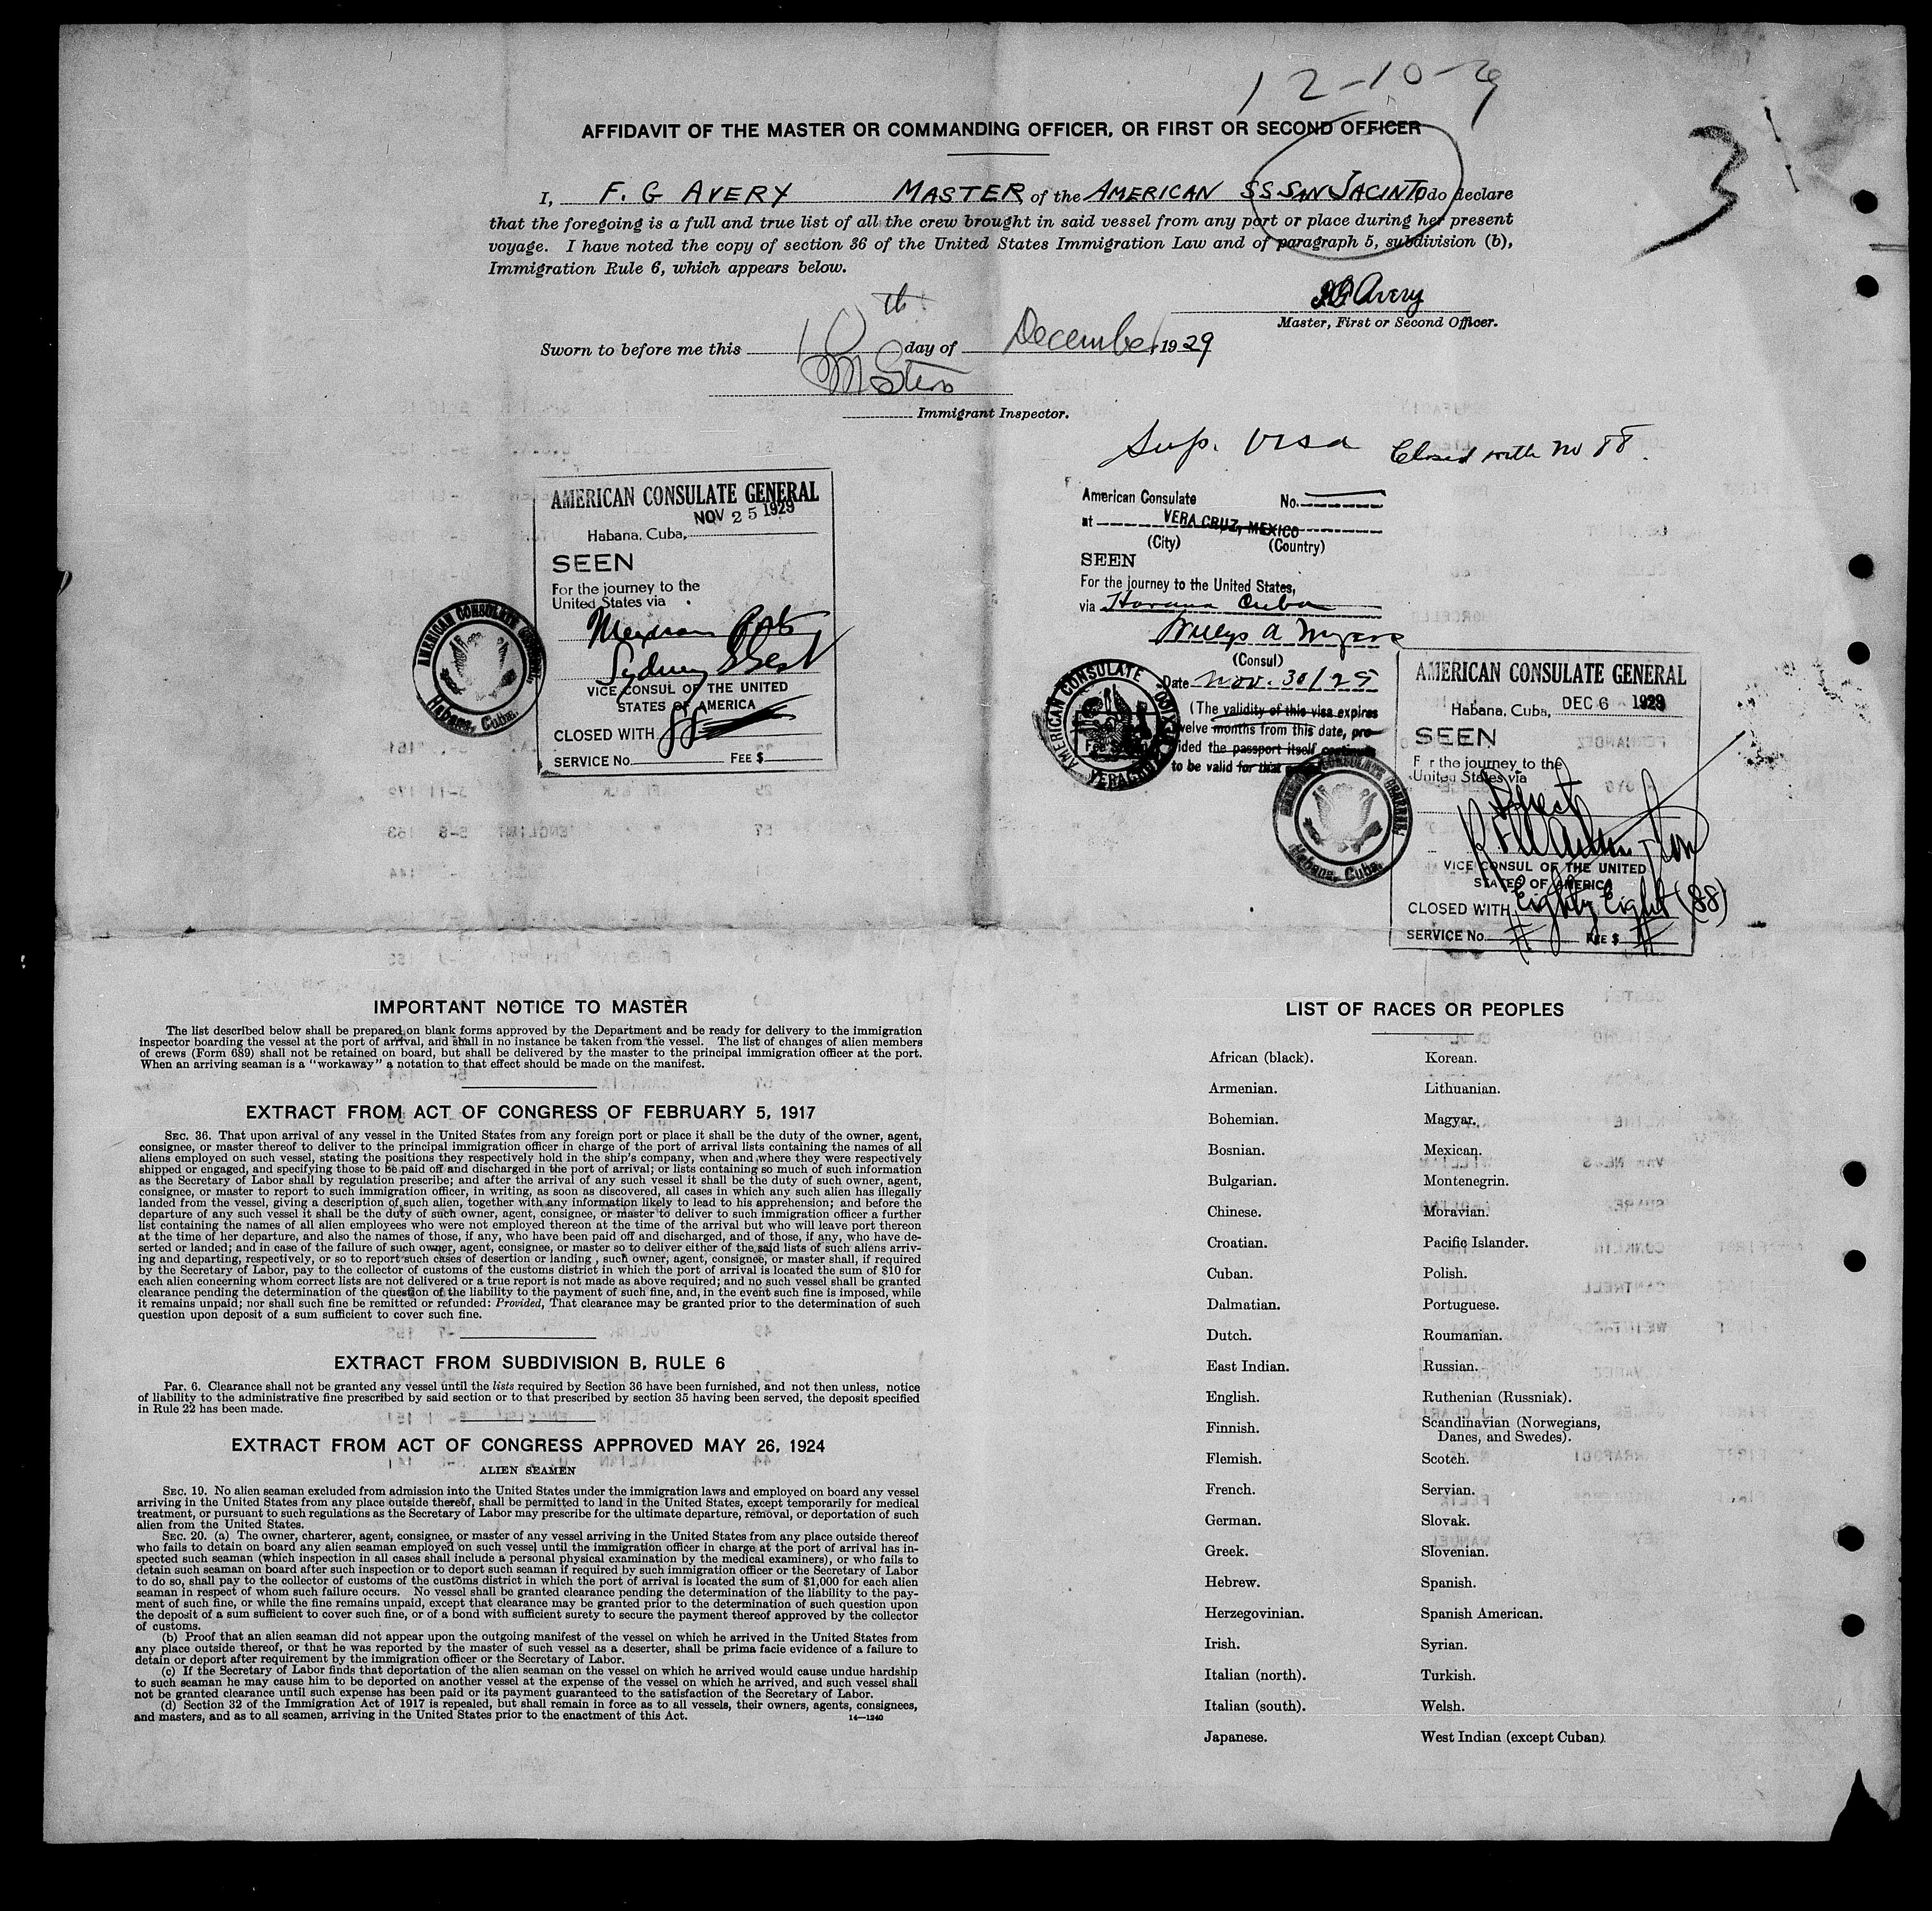 12-10-29
3
AFFIDAVIT OF THE MASTER OR COMMANDING OFFICER, OR FIRST OR SECOND OFFICER
I, F. G AVERY MASTER of the AMERICAN SS SAN JACINTO do declare
that the foregoing is a full and true list of all the crew brought in said vessel from any port or place during her present
voyage. I have noted the copy of section 36 of the United States Immigration Law and of paragraph 5, subdivision (b),
Immigration Rule 6, which appears below.
F G Avery
Master, First or Second Officer.
Sworn to before me this 10th day of December, 1929
Immigrant Inspector.
Sup. Visa Closed with no 88.
AMERICAN CONSULATE GENERAL
NOV 25 1929
Habana, Cuba,
SEEN
For the journey to the
United States via
Mexican Ports
Sydney
VICE CONSUL OF THE UNITED
STATES OF AMERICA
CLOSED WITH 88
SERVICE No. FEE $
AMERICAN CONSULATE GENERAL
Habana, Cuba.
American Consulate No.
at VERA CRUZ, MEXICO
(City) (Country)
SEEN
For the journey to the United States,
via Havana Cuba
Willys A Myers
(Consul)
Date Nov. 30/29
(The validity of this visa expires
twelve months from this date, pro-
vided the passport itself continues
to be valid for that
AMERICAN CONSULATE
VERACRUZ MEXICO
AMERICAN CONSULATE GENERAL
Habana, Cuba, DEC 6 1929
SEEN
For the journey to the
United States via
Direct
VICE CONSUL OF THE UNITED
STATES OF AMERICA
CLOSED WITH Eighty Eight (88)
SERVICE No. FEE $
AMERICAN CONSULATE GENERAL
Habana, Cuba.
IMPORTANT NOTICE TO MASTER
The list described below shall be prepared on blank forms approved by the Department and be ready for delivery to the immigration
inspector boarding the vessel at the port of arrival, and shall in no instance be taken from the vessel. The list of changes of alien members
of crews (Form 689) shall not be retained on board, but shall be delivered by the master to the principal immigration officer at the port.
When an arriving seaman is a "workaway" a notation to that effect should be made on the manifest.
EXTRACT FROM ACT OF CONGRESS OF FEBRUARY 5, 1917
SEC. 36. That upon arrival of any vessel in the United States from any foreign port or place it shall be the duty of the owner, agent,
consignee, or master thereof to deliver to the principal immigration officer in charge of the port of arrival lists containing the names of all
aliens employed on such vessel, stating the positions they respectively hold in the ship's company, when and where they were respectively
shipped or engaged, and specifying those to be paid off and discharged in the port of arrival; or lists containing so much of such information
as the Secretary of Labor shall by regulation prescribe; and after the arrival of any such vessel it shall be the duty of such owner, agent,
consignee, or master to report to such immigration officer, in writing, as soon as discovered, all cases in which any such alien has illegally
landed from the vessel, giving a description of such alien, together with any information likely to lead to his apprehension; and before the
departure of any such vessel it shall be the duty of such owner, agent, consignee, or master to deliver to such immigration officer a further
list containing the names of all alien employees who were not employed thereon at the time of the arrival but who will leave port thereon
at the time of her departure, and also the names of those, if any, who have been paid off and discharged, and of those, if any, who have de-
serted or landed; and in case of the failure of such owner, agent, consignee, or master so to deliver either of the said lists of such aliens arriv-
ing and departing, respectively, or so to report such cases of desertion or landing , such owner, agent, consignee, or master shall, if required
by the Secretary of Labor, pay to the collector of customs of the customs district in which the port of arrival is located the sum of $10 for
each alien concerning whom correct lists are not delivered or a true report is not made as above required; and no such vessel shall be granted
clearance pending the determination of the question of the liability to the payment of such fine, and, in the event such fine is imposed, while
it remains unpaid; nor shall such fine be remitted or refunded: Provided, That clearance may be granted prior to the determination of such
question upon deposit of a sum sufficient to cover such fine.
EXTRACT FROM SUBDIVISION B, RULE 6
PAR. 6. Clearance shall not be granted any vessel until the lists required by Section 36 have been furnished, and not then unless, notice
of liability to the administrative fine prescribed by said section or to that prescribed by section 35 having been served, the deposit specified
in Rule 22 has been made.
EXTRACT FROM ACT OF CONGRESS APPROVED MAY 26, 1924
ALIEN SEAMEN
SEC. 19. No alien seaman excluded from admission into the United States under the immigration laws and employed on board any vessel
arriving in the United States from any place outside thereof, shall be permitted to land in the United States, except temporarily for medical
treatment, or pursuant to such regulations as the Secretary of Labor may prescribe for the ultimate departure, removal, or deportation of such
alien from the United States.
SEC. 20. (a) The owner, charterer, agent, consignee, or master of any vessel arriving in the United States from any place outside thereof
who fails to detain on board any alien seaman employed on such vessel until the immigration officer in charge at the port of arrival has in-
spected such seaman (which inspection in all cases shall include a personal physical examination by the medical examiners), or who fails to
detain such seaman on board after such inspection or to deport such seaman if required by such immigration officer or the Secretary of Labor
to do so, shall pay to the collector of customs of the customs district in which the port of arrival is located the sum of $1,000 for each alien
seaman in respect of whom such failure occurs. No vessel shall be granted clearance pending the determination of the liability to the pay-
ment of such fine, or while the fine remains unpaid, except that clearance may be granted prior to the determination of such question upon
the deposit of a sum sufficient to cover such fine, or of a bond with sufficient surety to secure the payment thereof approved by the collector
of customs.
(b) Proof that an alien seaman did not appear upon the outgoing manifest of the vessel on which he arrived in the United States from
any place outside thereof, or that he was reported by the master of such vessel as a deserter, shall be prima facie evidence of a failure to
detain or deport after requirement by the immigration officer or the Secretary of Labor.
(c) If the Secretary of Labor finds that deportation of the alien seaman on the vessel on which he arrived would cause undue hardship
to such seaman he may cause him to be deported on another vessel at the expense of the vessel on which he arrived, and such vessel shall
not be granted clearance until such expense has been paid or its payment guaranteed to the satisfaction of the Secretary of Labor.
(d) Section 32 of the Immigration Act of 1917 is repealed, but shall remain in force as to all vessels, their owners, agents, consignees,
and masters, and as to all seamen, arriving in the United States prior to the enactment of this Act. 14—1240
LIST OF RACES OR PEOPLES
African (black). Korean.
Armenian. Lithuanian.
Bohemian. Magyar.
Bosnian. Mexican.
Bulgarian. Montenegrin.
Chinese. Moravian.
Croatian. Pacific Islander.
Cuban. Polish.
Dalmatian. Portuguese.
Dutch. Roumanian.
East Indian. Russian.
English. Ruthenian (Russniak).
Finnish. Scandinavian (Norwegians,
Danes, and Swedes).
Flemish. Scotch.
French. Servian.
German. Slovak.
Greek. Slovenian.
Hebrew. Spanish.
Herzegovinian. Spanish American.
Irish. Syrian.
Italian (north). Turkish.
Italian (south). Welsh.
Japanese. West Indian (except Cuban).